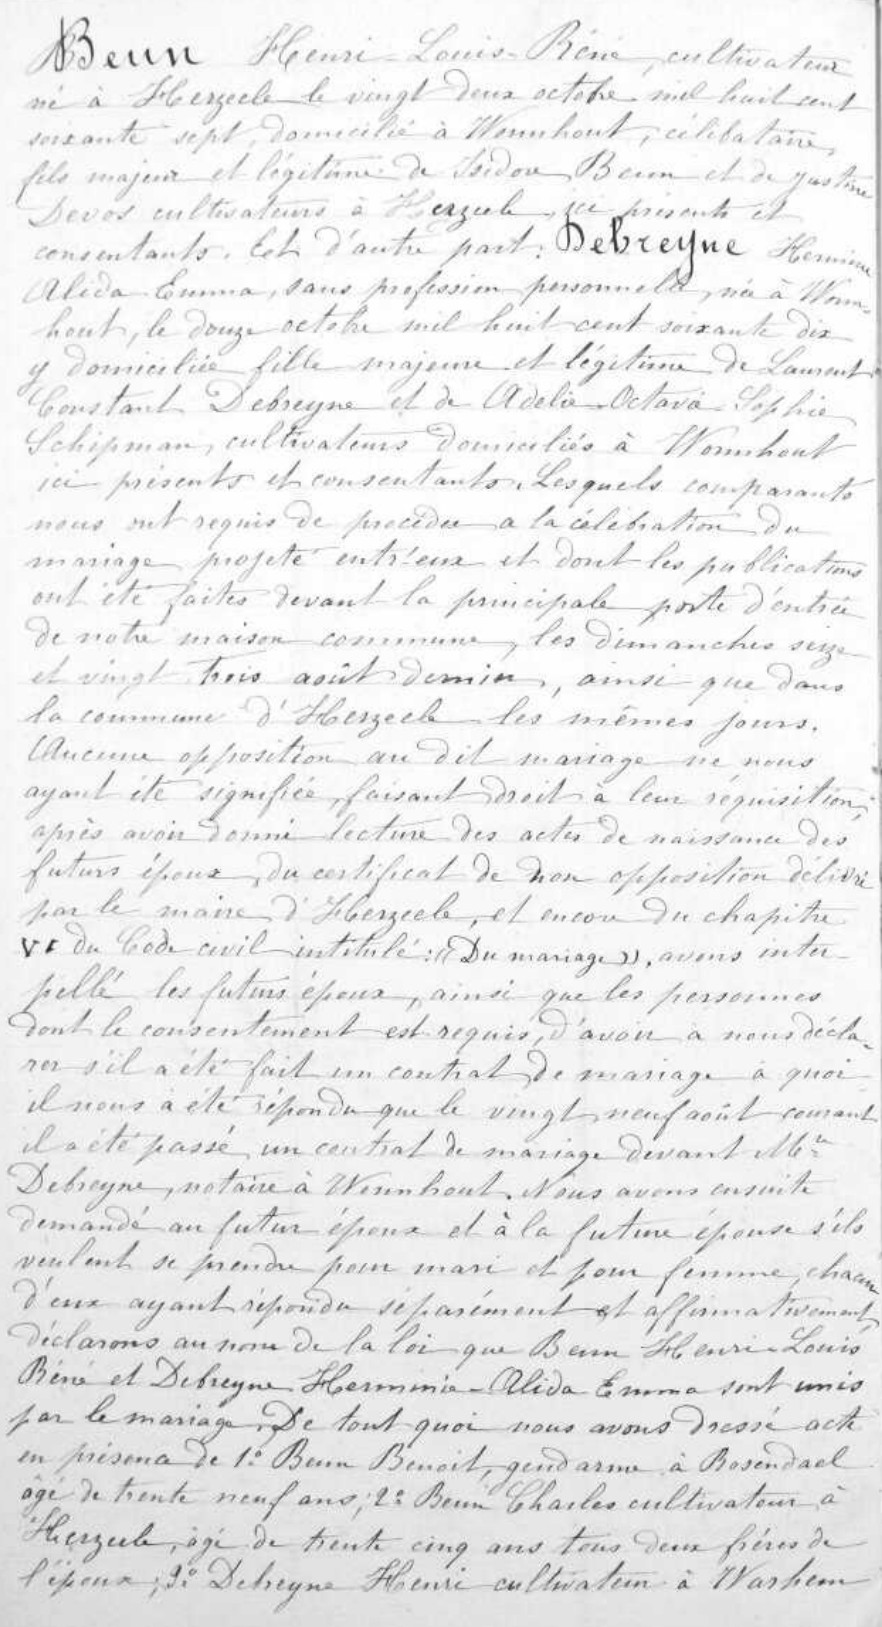 Beun Henri-Louis-Réné, cultivateur
né à Herzeele le vingt deux octobre mil huit cent
soixante sept, domicilié à Wormhout, célibataire,
fils majeur et légitime de Isidore Beun et de Justine
Devos cultivateurs à Herzeele, ici présents et
consentants. Et d'autre part: Debreyne Herminie
Alida Emma, sans profession personnelle, née à Worm-
hout, le douze octobre mil huit cent soixante dix
y domiciliée fille majeure et légitime de Laurent
Constant Debreyne et de Adélie-Octavie-Sophie
Schipman, cultivateurs domiciliés à Wormhout
ici présents et consentants. Lesquels comparants
nous ont requis de procéder a la célébration du
mariage projeté entr'eux et dont les publications
ont été faites devant la principale porte d'entrée
de notre maison commune, les dimanches seize
et vingt trois août dernier, ainsi que dans
la commune d'Herzeele les mêmes jours.
Aucune opposition au dit mariage ne nous
ayant été signifiée, faisant droit à leur réquisition,
après avoir donné lecture des actes de naissance des
futurs époux, du certificat de non opposition délivré
par le maire d'Herzeele, et encore du chapitre
VI du Code civil intitulé: «Du mariage», avons inter-
pellé les futurs époux, ainsi que les personnes
dont le consentement est requis, d'avoir à nous décla-
rer s'il a été fait un contrat de mariage à quoi
il nous à été répondu que le vingt neuf août courant
il a été passé un contrat de mariage devant Me
Debreyne, notaire à Wormhout. Nous avons ensuite
demandé au futur époux et à la future épouse s'ils
veulent se prendre pour mari et pour femme, chacun
d'eux ayant répondu séparément et affirmativement,
déclarons au nom de la loi que Beun Henri-Louis
Réné et Debreyne Herminie-Alida Emma sont unis
par le mariage. De tout quoi nous avons dressé acte
en présence de 1° Beun Benoit, gendarme à Rosendael
âgé de trente neuf ans; 2° Beun Charles cultivateur à
Herzeele, âgé de trente cinq ans tous deux frères de
l'époux; 3° Debreyne Henri cultivateur à Warhem